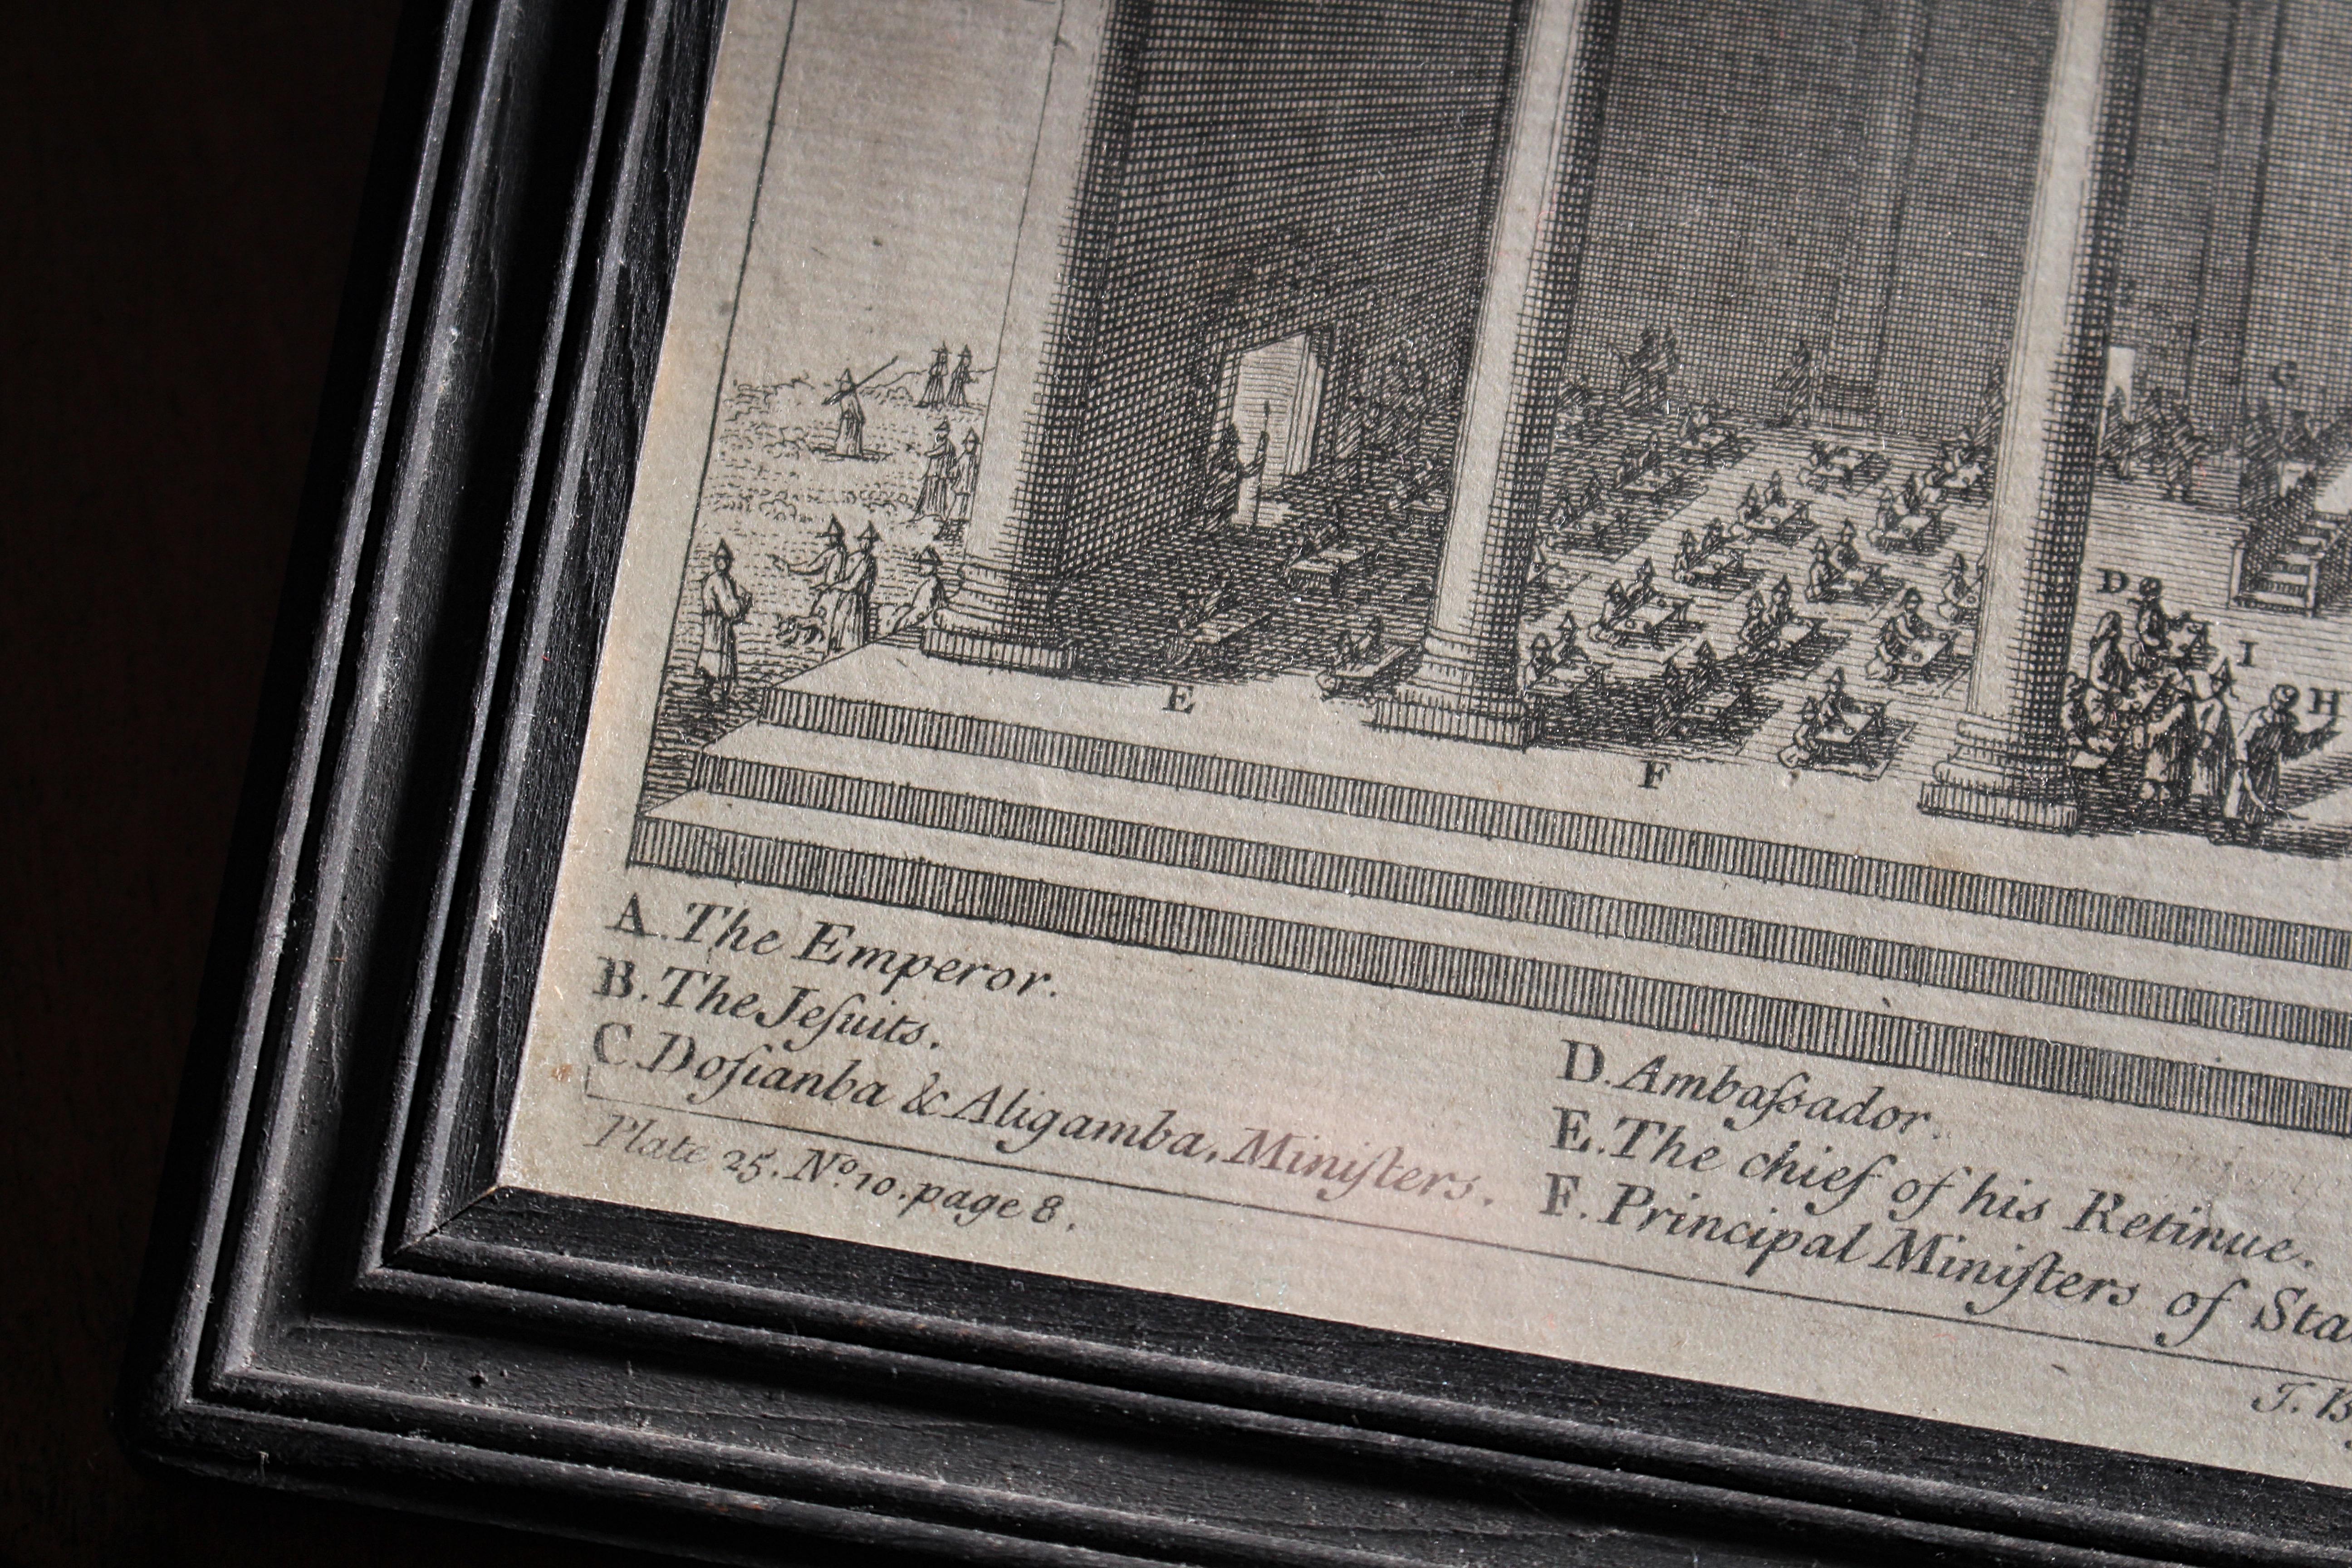 D
I
H
E
F
A. The Emperor.
B. The Jeſuits.
C. Doſianba & Aligamba, Miniſters.
D. Ambaſsador.
E. The chief of his Retinue.
F. Principal Miniſters of Sta
Plate 25. No. 10. page 8.
J. B